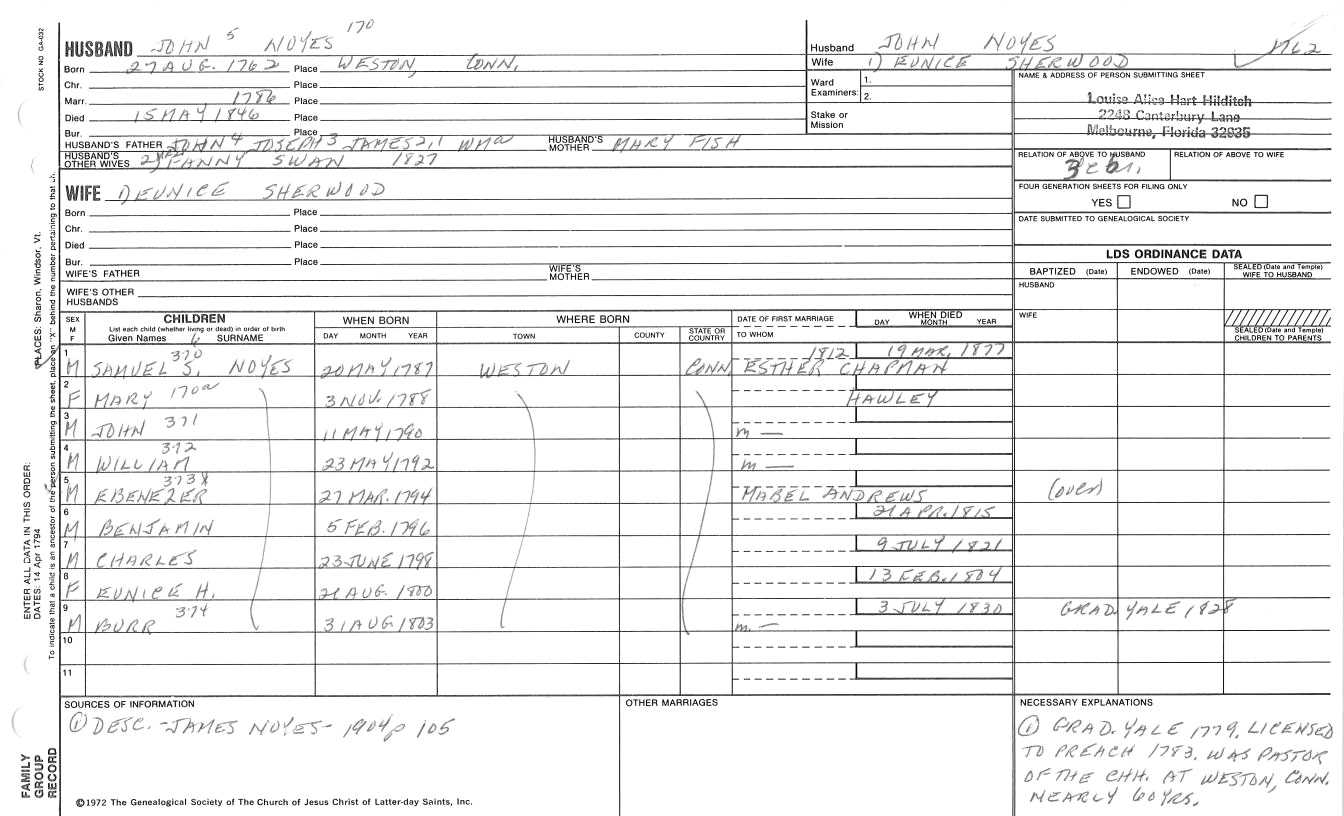 STOCK NO. GA-032
HUSBAND JOHN 5 NOYES 170
Born 27 AUG. 1762 Place WESTON, CONN.
Chr. Place
Marr. 1786 Place
Died 15 MAY 1846 Place
Bur. Place
HUSBAND'S FATHER JOHN 4 JOSEPH 3 JAMES 2,1 WMa HUSBAND'S MOTHER MARY FISH
HUSBAND'S OTHER WIVES 2) FANNY SWAN 1827
Husband JOHN NOYES 1762
Wife 1) EUNICE SHERWOOD
Ward Examiners: 1.
2.
Stake or Mission
NAME & ADDRESS OF PERSON SUBMITTING SHEET
Louise Alice Hart Hilditch
2248 Canterbury Lane
Melbourne, Florida 32935
RELATION OF ABOVE TO HUSBAND RELATION OF ABOVE TO WIFE
FOUR GENERATION SHEETS FOR FILING ONLY
YES NO
DATE SUBMITTED TO GENEALOGICAL SOCIETY
WIFE 1) EUNICE SHERWOOD
Born Place
Chr. Place
Died Place
Bur. Place
WIFE'S FATHER WIFE'S MOTHER
WIFE'S OTHER HUSBANDS
LDS ORDINANCE DATA
BAPTIZED (Date) ENDOWED (Date) SEALED (Date and Temple) WIFE TO HUSBAND
HUSBAND
WIFE
SEALED (Date and Temple) CHILDREN TO PARENTS
SEX M F CHILDREN WHEN BORN WHERE BORN DATE OF FIRST MARRIAGE WHEN DIED
List each child (whether living or dead) in order of birth
Given Names 6 SURNAME DAY MONTH YEAR TOWN COUNTY STATE OR COUNTRY TO WHOM DAY MONTH YEAR
1 370 1812 19 MAR. 1877
M SAMUEL S. NOYES 20 MAY 1787 WESTON CONN ESTHER CHAPMAN
2
F MARY 170a 3 NOV. 1788 HAWLEY
3
M JOHN 371 11 MAY 1790 m —
4 372
M WILLIAM 23 MAY 1792 m —
5 373X
M EBENEZER 27 MAR. 1794 MABEL ANDREWS (over)
6 21 APR. 1815
M BENJAMIN 5 FEB. 1796
7 9 JULY 1821
M CHARLES 23 JUNE 1798
8 13 FEB. 1804
F EUNICE H. 21 AUG. 1800
9 374 3 JULY 1830 GRAD. YALE 1828
M BURR 31 AUG 1803 m. —
10
11
SOURCES OF INFORMATION
① DESC. - JAMES NOYES - 1904 p 105
OTHER MARRIAGES
NECESSARY EXPLANATIONS
① GRAD. YALE 1779, LICENSED
TO PREACH 1783. WAS PASTOR
OF THE CHH. AT WESTON, CONN.
NEARLY 60 YRS.
©1972 The Genealogical Society of The Church of Jesus Christ of Latter-day Saints, Inc.
FAMILY
GROUP
RECORD
ENTER ALL DATA IN THIS ORDER:
DATES: 14 Apr 1794
PLACES: Sharon, Windsor, Vt.
To indicate that a child is an ancestor of the person submitting the sheet, place an "X" behind the number pertaining to that